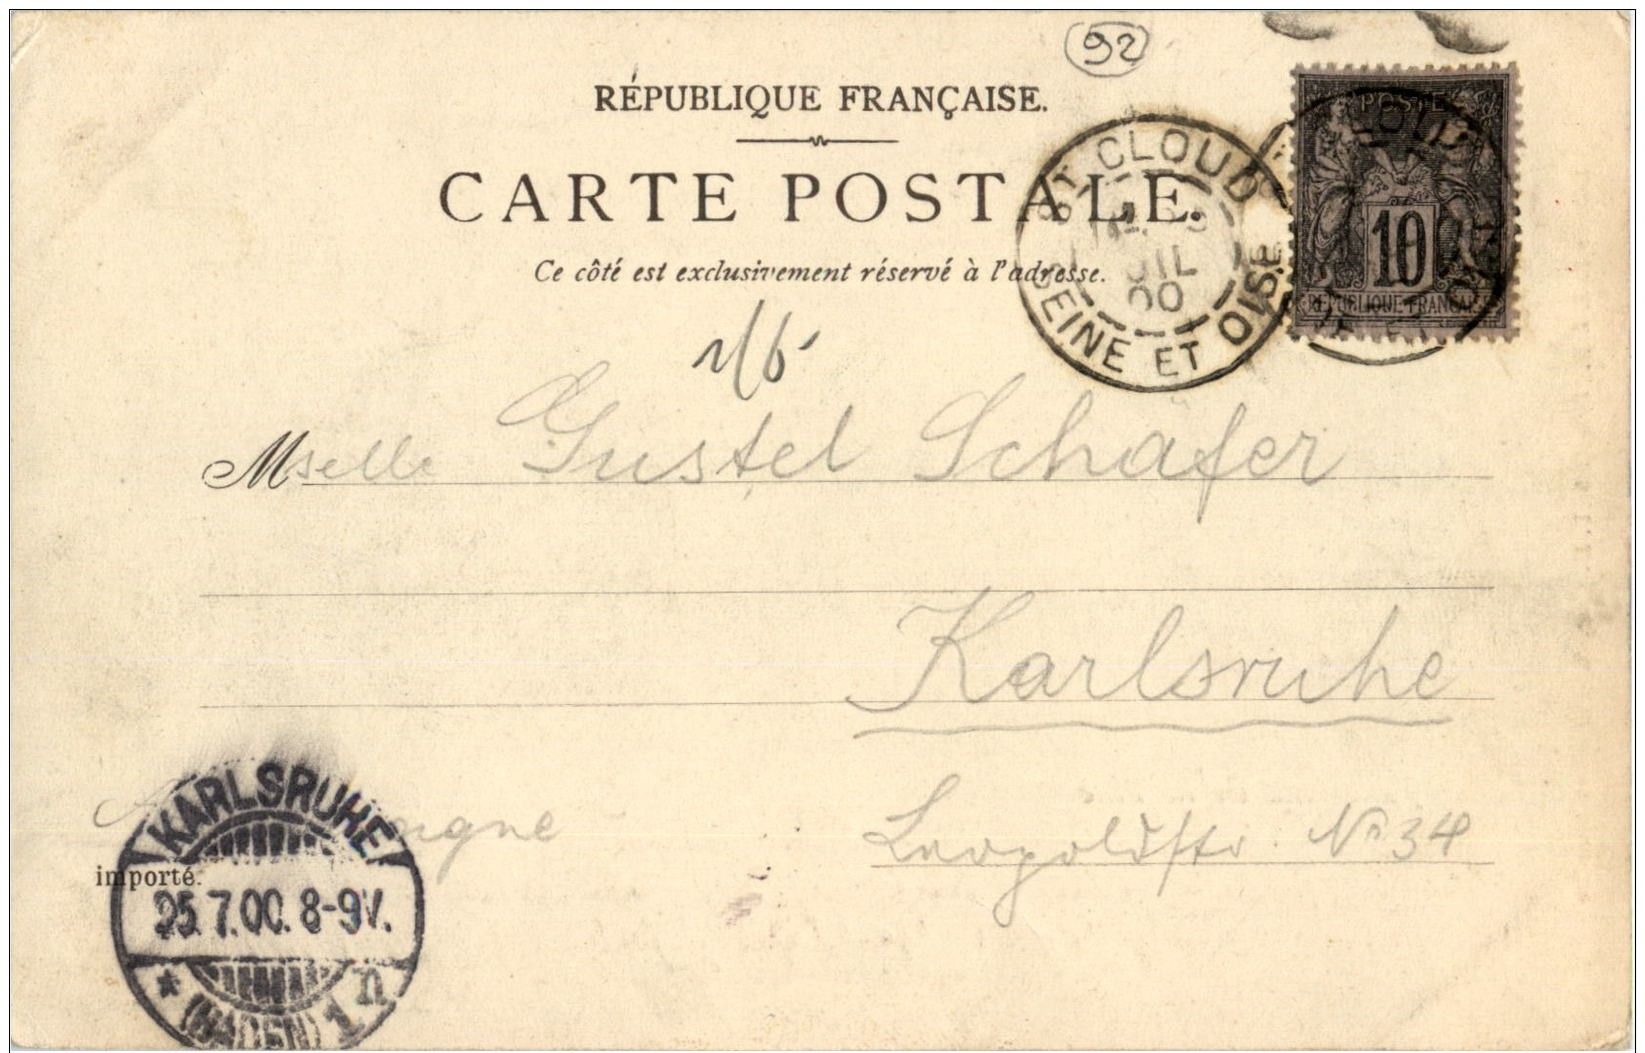 92
RÉPUBLIQUE FRANÇAISE.
CARTE POSTALE.
Ce côté est exclusivement réservé à l'adresse.
POSTE
10
REPUBLIQUE FRANÇAISE
ST CLOUD
JUIL
00
SEINE ET OISE
Mselle Gustel Schäfer
Karlsruhe
Leopoldstr. No 34
importé.
KARLSRUHE
25.7.00. 8-9V.
* (BADEN) 1 n